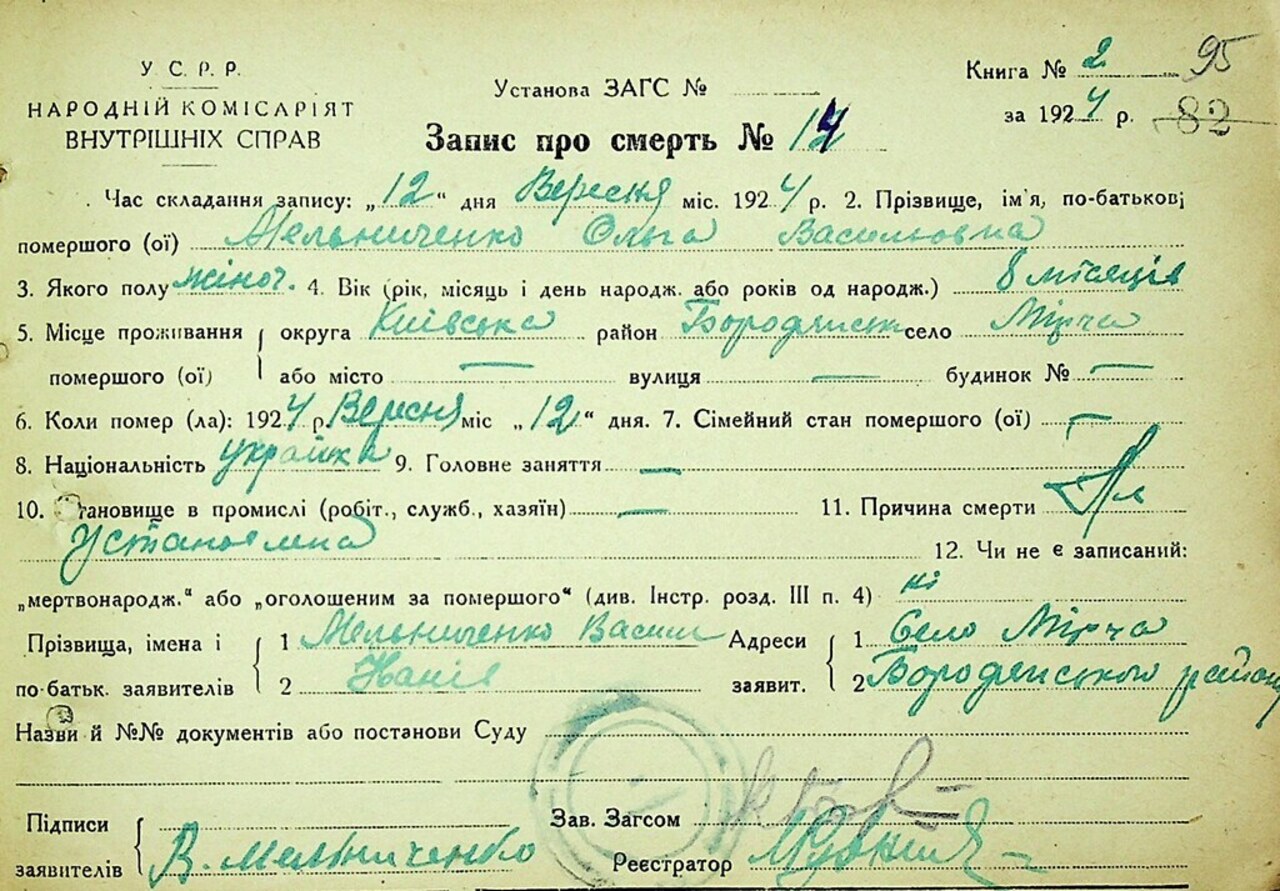 У. С. Р. Р.
НАРОДНІЙ КОМІСАРІЯТ
ВНУТРІШНІХ СПРАВ
Установа ЗАГС №
Запис про смерть № 14
Книга № 2 95
за 1924 р. 82
Час складання запису: „12“ дня Вересня міс. 1924 р. 2. Прізвище, ім'я, по-батькові
помершого (ої) Мельниченко Ольга Васильовна
3. Якого полу жіноч. 4. Вік (рік, місяць і день народж. або років од народж.) 8 місяців
5. Місце проживання округа Київська район Бородянськ село Мірча
помершого (ої) або місто — вулиця — будинок № —
6. Коли помер (ла): 1924 р. Вересня міс „12“ дня. 7. Сімейний стан помершого (ої) —
8. Національність українка 9. Головне заняття —
10. Становище в промислі (робіт., служб., хазяїн) — 11. Причина смерти
12. Чи не є записаний:
„мертвонародж.“ або „оголошеним за помершого“ (див. Інстр. розд. III п. 4) ні
Прізвища, імена і 1 Мельниченко Васил Адреси 1 Село Мірча
по-батьк. заявителів 2 заявит. 2 Бородянського району
Назви й №№ документів або постанови Суду
Підписи Зав. Загсом
заявителів В. Мельниченко Реєстратор